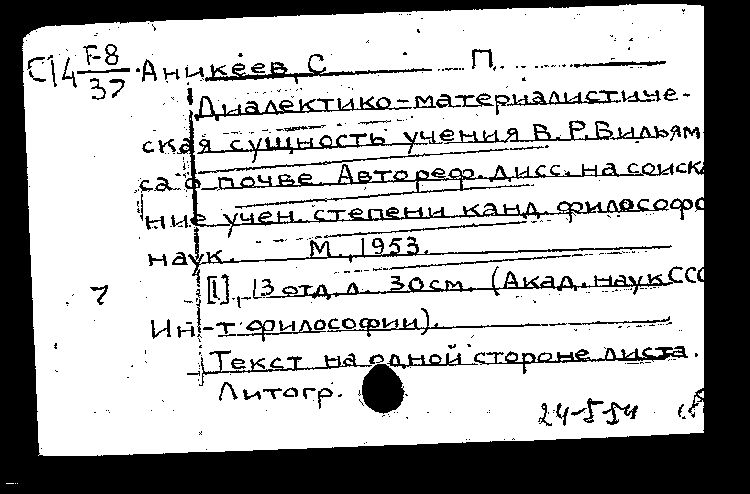 С14 F-8/37 Аникеев, С П.
Диалектико-материалистиче-
ская сущность учения В. Р. Вильям
са о почве. Автореф. дисс. на соиска
ние учен. степени канд. философс
наук. М., 1953.
[1], 13 отд. л. 30 см. (Акад. наук ССС
Ин-т философии).
Текст на одной стороне листа.
Литогр.
24-5-54